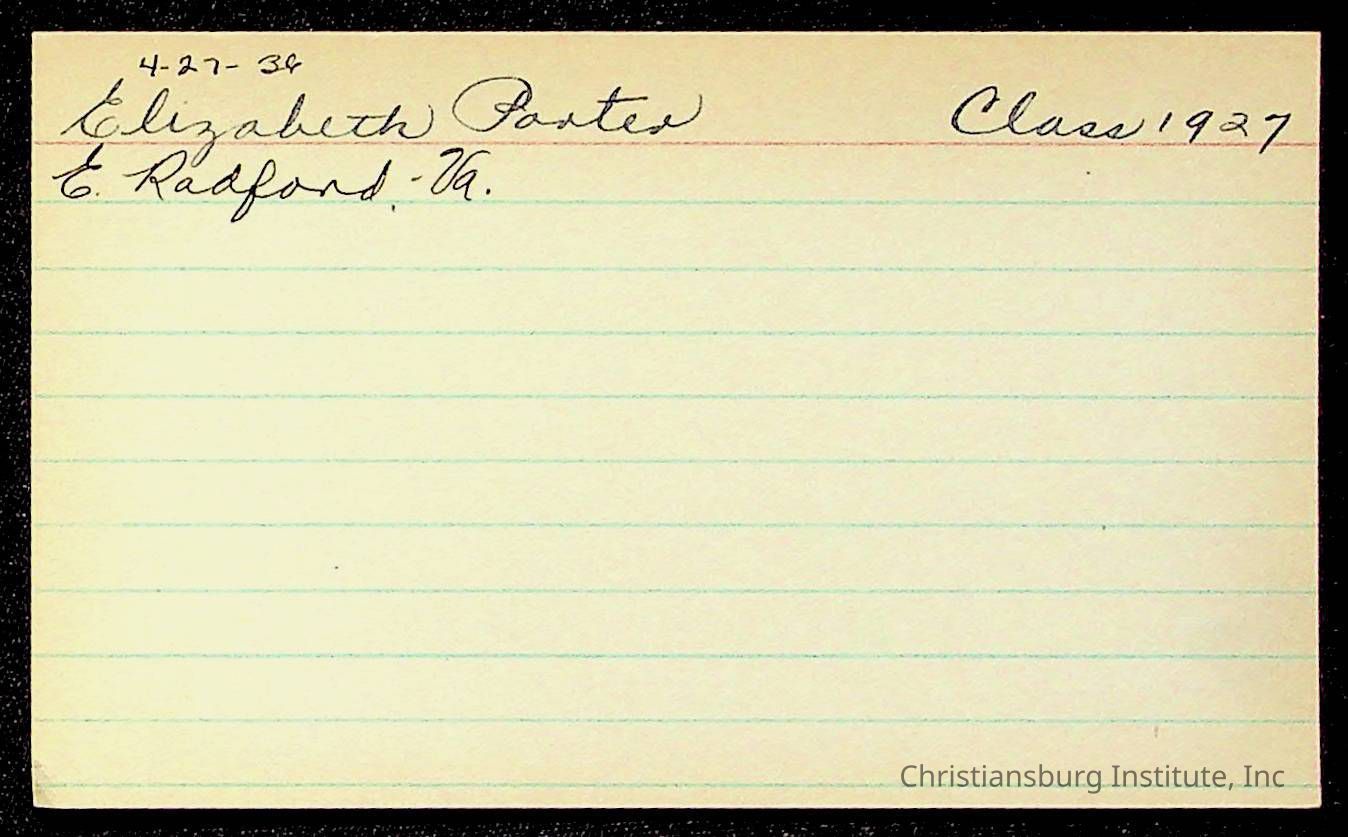 4-27-36
Elizabeth Porter Class 1927
E. Radford, Va.
Christiansburg Institute, Inc